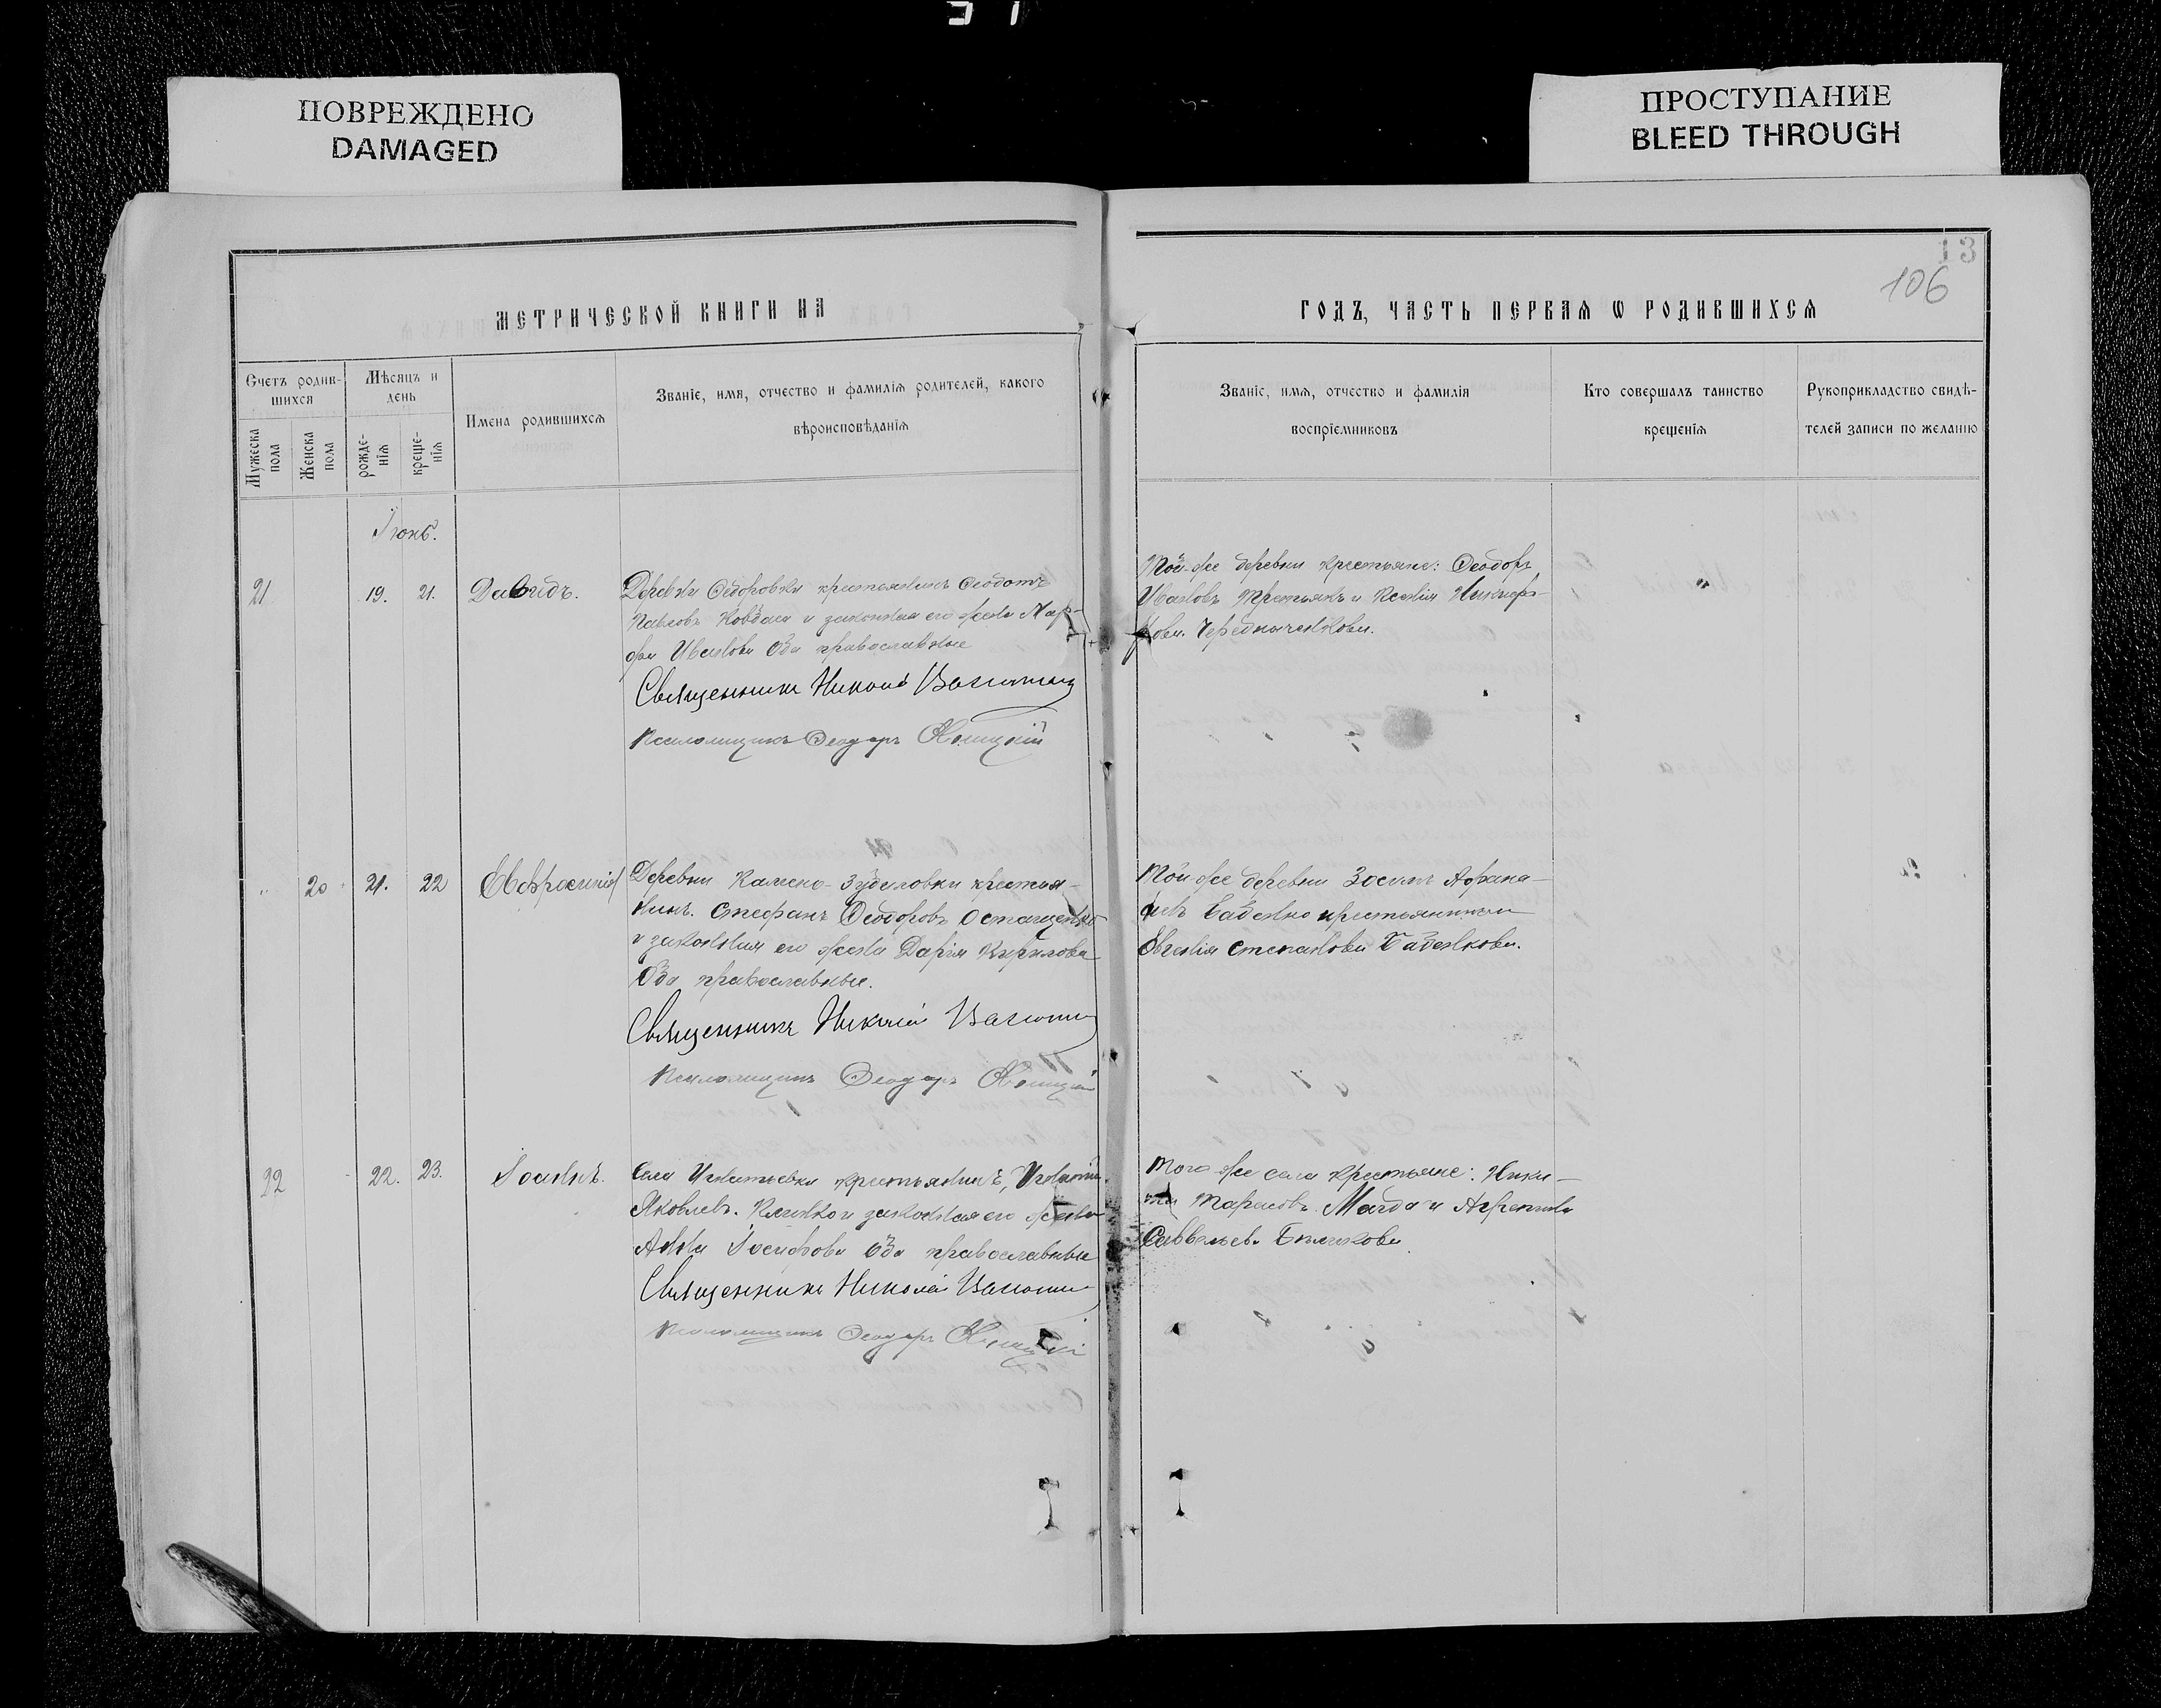 ПОВРЕЖДЕНО
DAMAGED
ПРОСТУПАНИЕ
BLEED THROUGH
13
106
МЕТРИЧЕСКОЙ КНИГИ НА
ГОДЪ, ЧАСТЬ ПЕРВАЯ Ѡ РОДИВШИХСЯ
Счетъ родив-
шихся
Мѣсяцъ и
день
Мужеска
пола
Женска
пола
рожде-
нія
креще-
нія
Имена родившихся
Званіе, имя, отчество и фамилія родителей, какого
вѣроисповѣданія
Званіе, имя, отчество и фамилія
воспріемниковъ
Кто совершалъ таинство
крещенія
Рукоприкладство свидѣ-
телей записи по желанію
Іюнь.
21 19. 21. Давидъ.
Деревни Ѳедоровки крестьянинъ Ѳеодотъ
Павловъ Ковбаса и законная его жена Мар-
фа Иванова Оба православные
Священникъ Николай
Псаломщикъ Ѳеодоръ
Той-же деревни крестьяне: Ѳеодоръ
Ивановъ Третьякъ и Ксенія Никифо-
рова Чередниченкова.
20 21. 22 Евфросинія
Деревни Камено-Зубиловки крестья-
нинъ. Стефанъ Ѳеодоровъ Остащенко
и законная его жена Дарія Кирилова
Оба православные.
Священникъ Николай
Псаломщикъ Ѳеодоръ
Той-же деревни Зосимъ Афана-
сіевъ Бабенко крестьянинъ и
Евгенія Степанова Бабенкова.
22 22. 23. Іоаннъ.
Села Игнатьевки крестьянинъ, Игнатій
Яковлевъ. Клинко и законная его жена
Анна Іосифова Оба православные
Священникъ Николай
Псаломщикъ Ѳеодоръ
Того-же села крестьяне: Ники-
та Тарасовъ Магда и Агрепина
Савельева